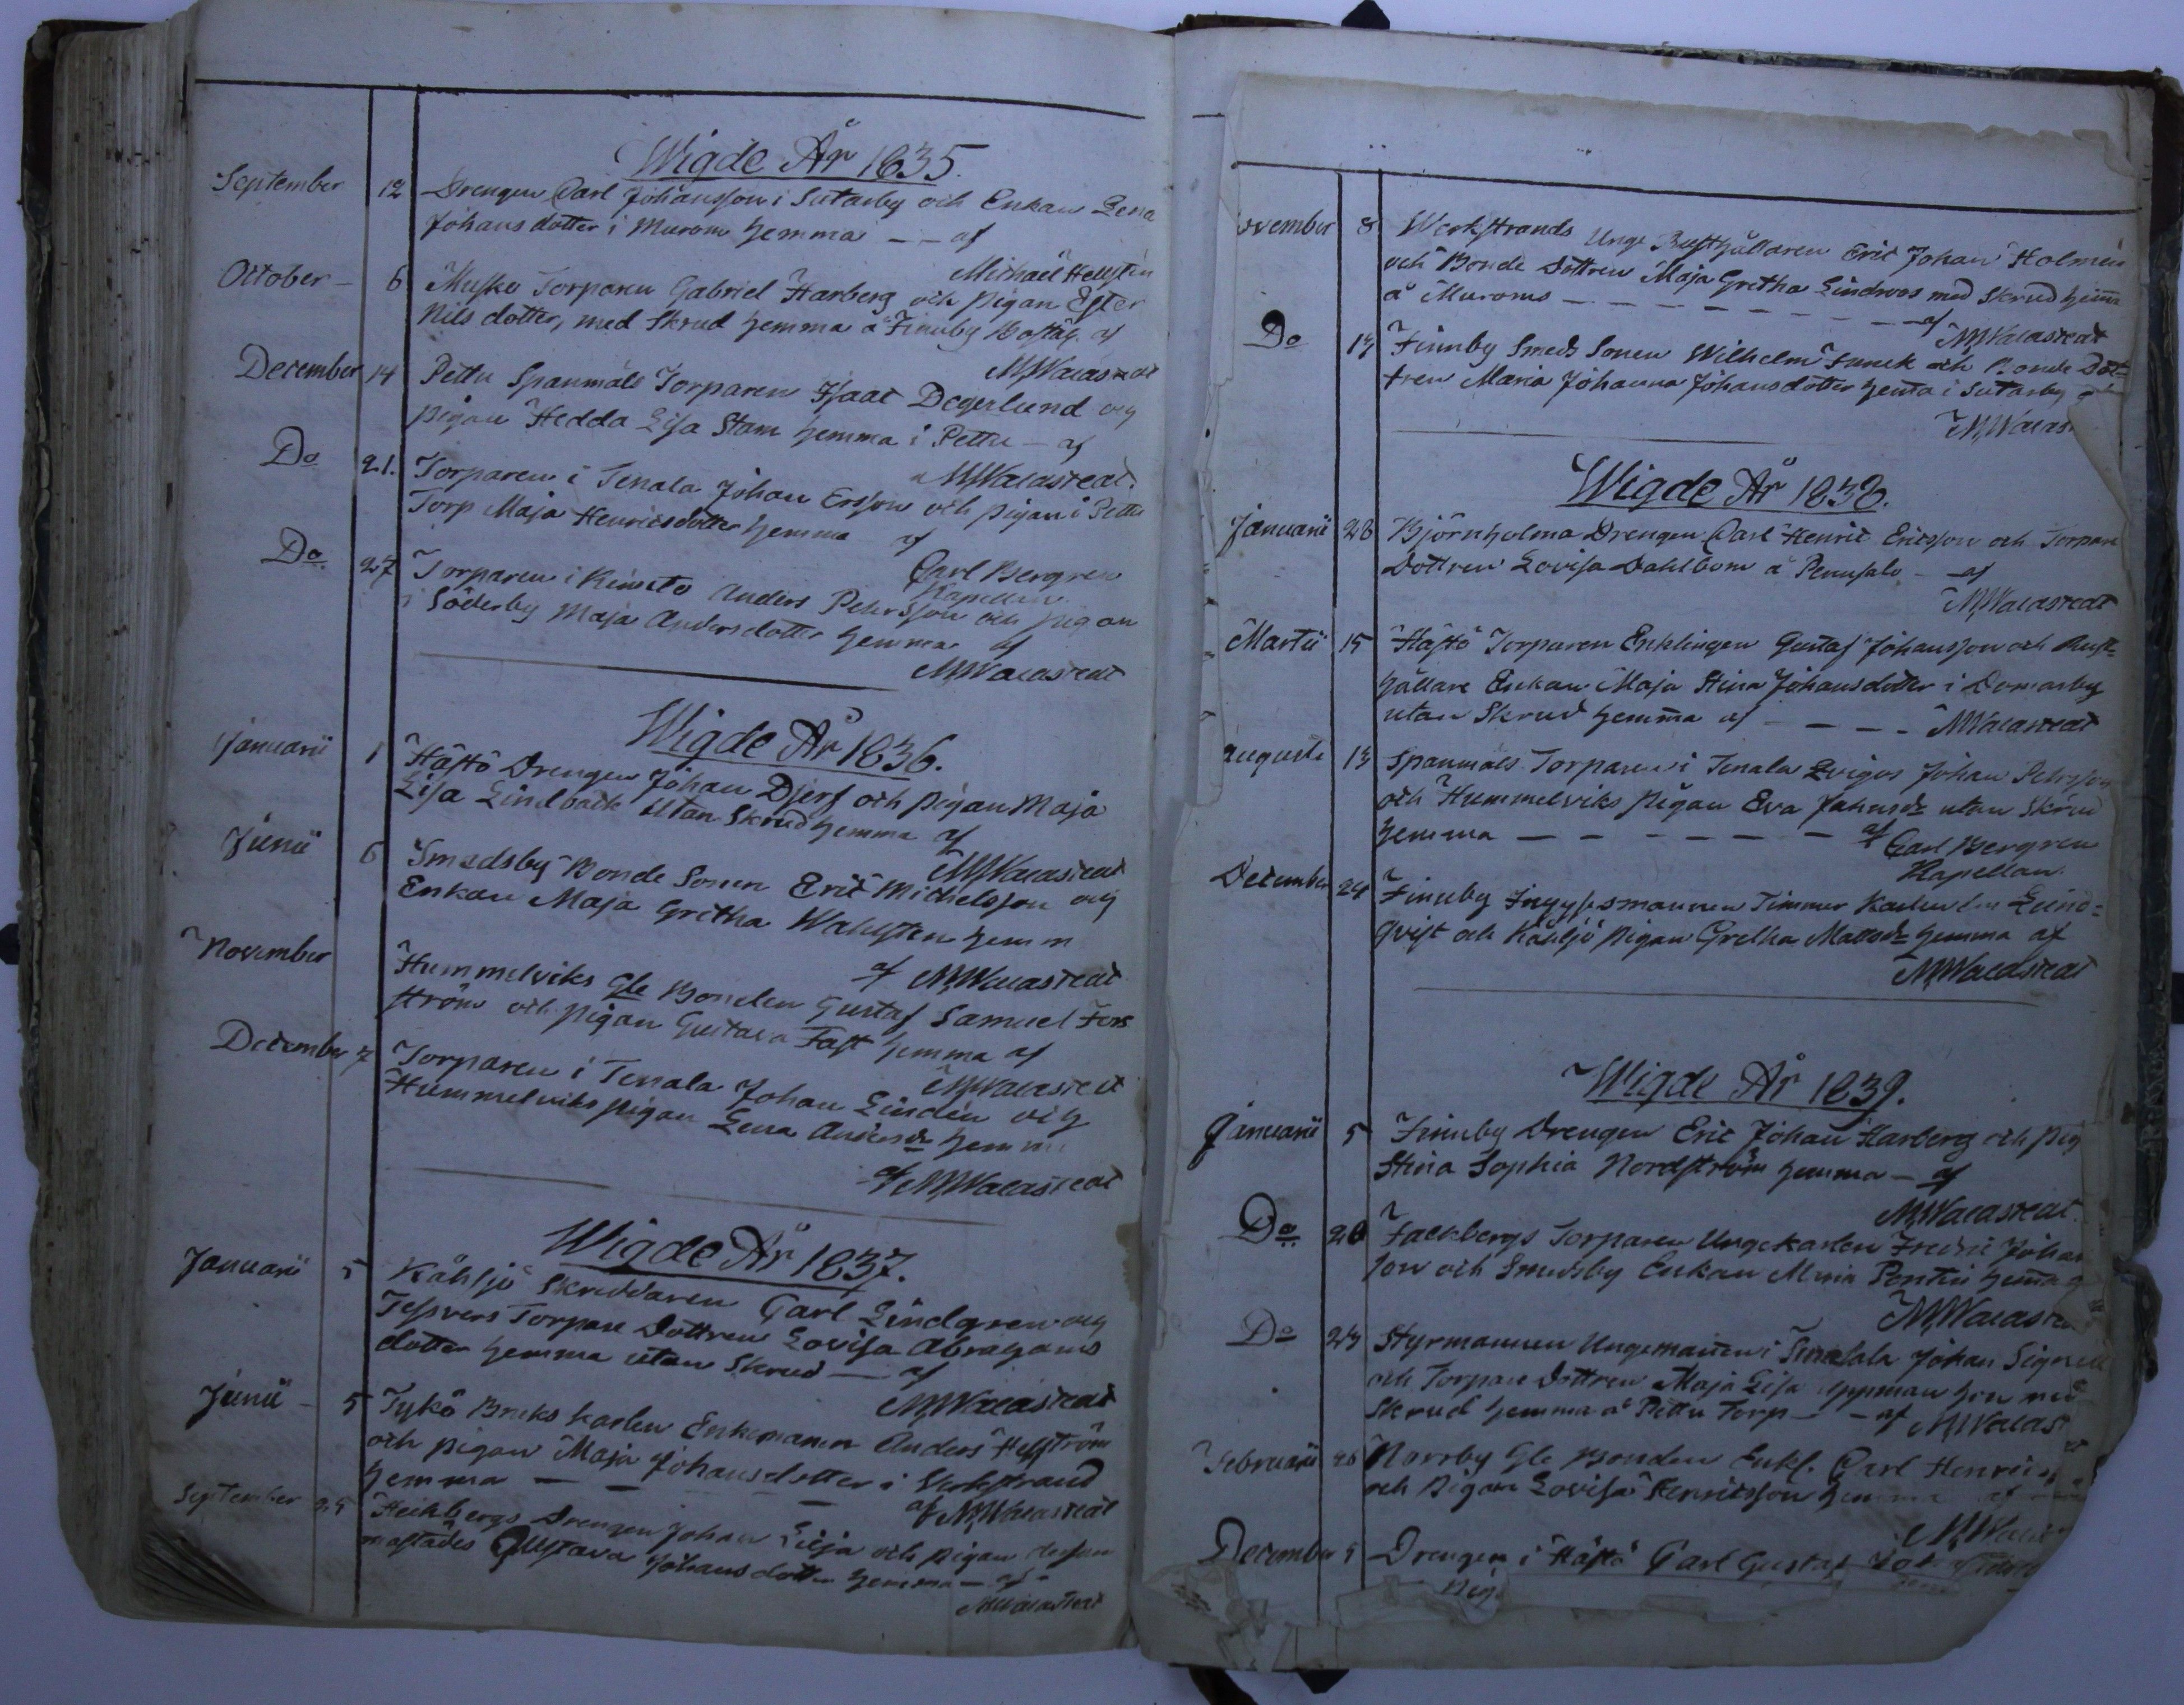 Wigde År 1835.
September 12 Drengen Carl Johansson i Sutarby och Enkan Lena
Johansdotter i Murom hemma — — af
Michael Hellstén
October — 6 Musko Torparen Gabriel Harberg och pigan Ester
Nilsdotter, med Skrud hemma å Finnby
af
December 14 Pettu Spanmåls Torparen Isaac Degerlund och
pigan Hedda Lisa Stam hemma i Pettu — af
Do 21. Torparen i Tenala Johan Ersson och pigan i Pettu
Torp Maja Henricsdotter hemma af
Carl Bergren
Kapellan
Do. 27 Torparen i Kimito Anders Petersson och pigan
i Söderby Maja Andersdotter hemma af
Wigde År 1836.
Januarii 1 Håstö Drengen Johan Djerf och pigan Maja
Lisa Lindbäck utan Skrud hemma af
Junii 6 Smedsby Bonde Sonen Eric Michelsson och
Enkan Maja Gretha Wahlsten hemm
af
November Hummelviks Gle Bonden Gustaf Samuel Fors
ström och pigan Gustava Fast hemma af
December 7 Torparen i Tenala Johan Lindén och
Hummelviks pigan Lena Andersdr hemma
af
Wigde År 1837.
Januarii 5 Kåhljo Skreddaren Carl Lindgren och
Torpare Dottren Lovisa Abrahams
dotter hemma utan Skrud — af
Junii — 5 Tykö Bruks karlen Enkemannen Anders Hellström
och pigan Maja Johansdotter i Verkstrand
hemma — — — af
September 24 Drengen Johan Lilja och pigan
Gustava Johansdotter hemma — af
ovember 8 Werkstrands Unge Rusthållaren Eric Johan Holmén
och Bonde Dottren Maja Gretha Lindroos med Skrud hemma
å Muroms — — — — — — af
Do 17 Finnby Smeds Sonen Wilhelm Funck och Bonde Dot=
tren Maria Johanna Johansdotter hemma i Sutarby
Wigde År 1838.
Januarii 28 Björnholma Drengen Carl Henric Ericsson och Torpare
Dottren Lovisa Dahlbom å Pensalo — af
Martii 15 Håstö Torparen Enklingen Gustaf Johansson och Rust=
hållare Enkan Maja Stina Johansdotter i Domarby
utan Skrud hemma af — — —
Augusti 13 Spanmåls Torparen i Tenala Johan Petersson
och Hummelviks pigan Eva Johansdr utan Skrud
hemma — — — — — — af Carl Bergren
Kapellan
December 24 Finnby Timmer Karlen Lind=
qvist och Kåhljo pigan Gretha Mattsdr hemma af
Wigde År 1839.
Januarii 5 Finnby Drengen Eric Johan Harberg och pig
Stina Sophia Nordström hemma — af
Do 20 Falkbergs Torparen Ungekarlen Fredric Johan
son och Smedsby Enkan Maria Pontin hemma
Do 23 Styrmannen Ungemannen i Tenala Johan
och Torpare Dottren Maja Lisa Uppman hon med
Skrud hemma å Pettu Torp — — af
Februarii 26 Norrby Gle Bonden Enkl. Carl Henrics
och Pigan Lovisa Henricsson hemma af
December 5 Drengen i Håstö Carl Gustaf